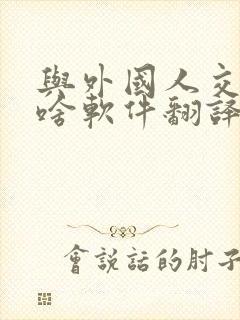 與外國人交
啥軟件翻譯
會說話的肘子